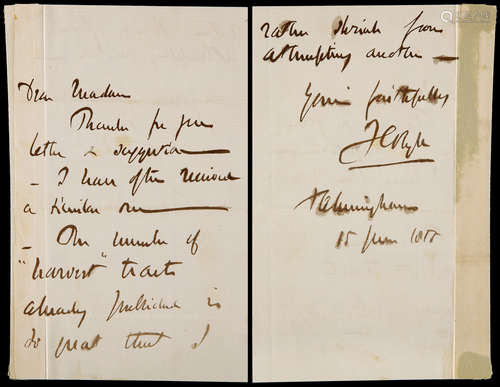 Dear Madam
Thanks for your
letter & suggestion
- I have often received
a similar one
- The number of
"harvest" tracts
already published is
so great that I
rather shrink from
attempting another -
Yours faithfully
JCRyle
15 June